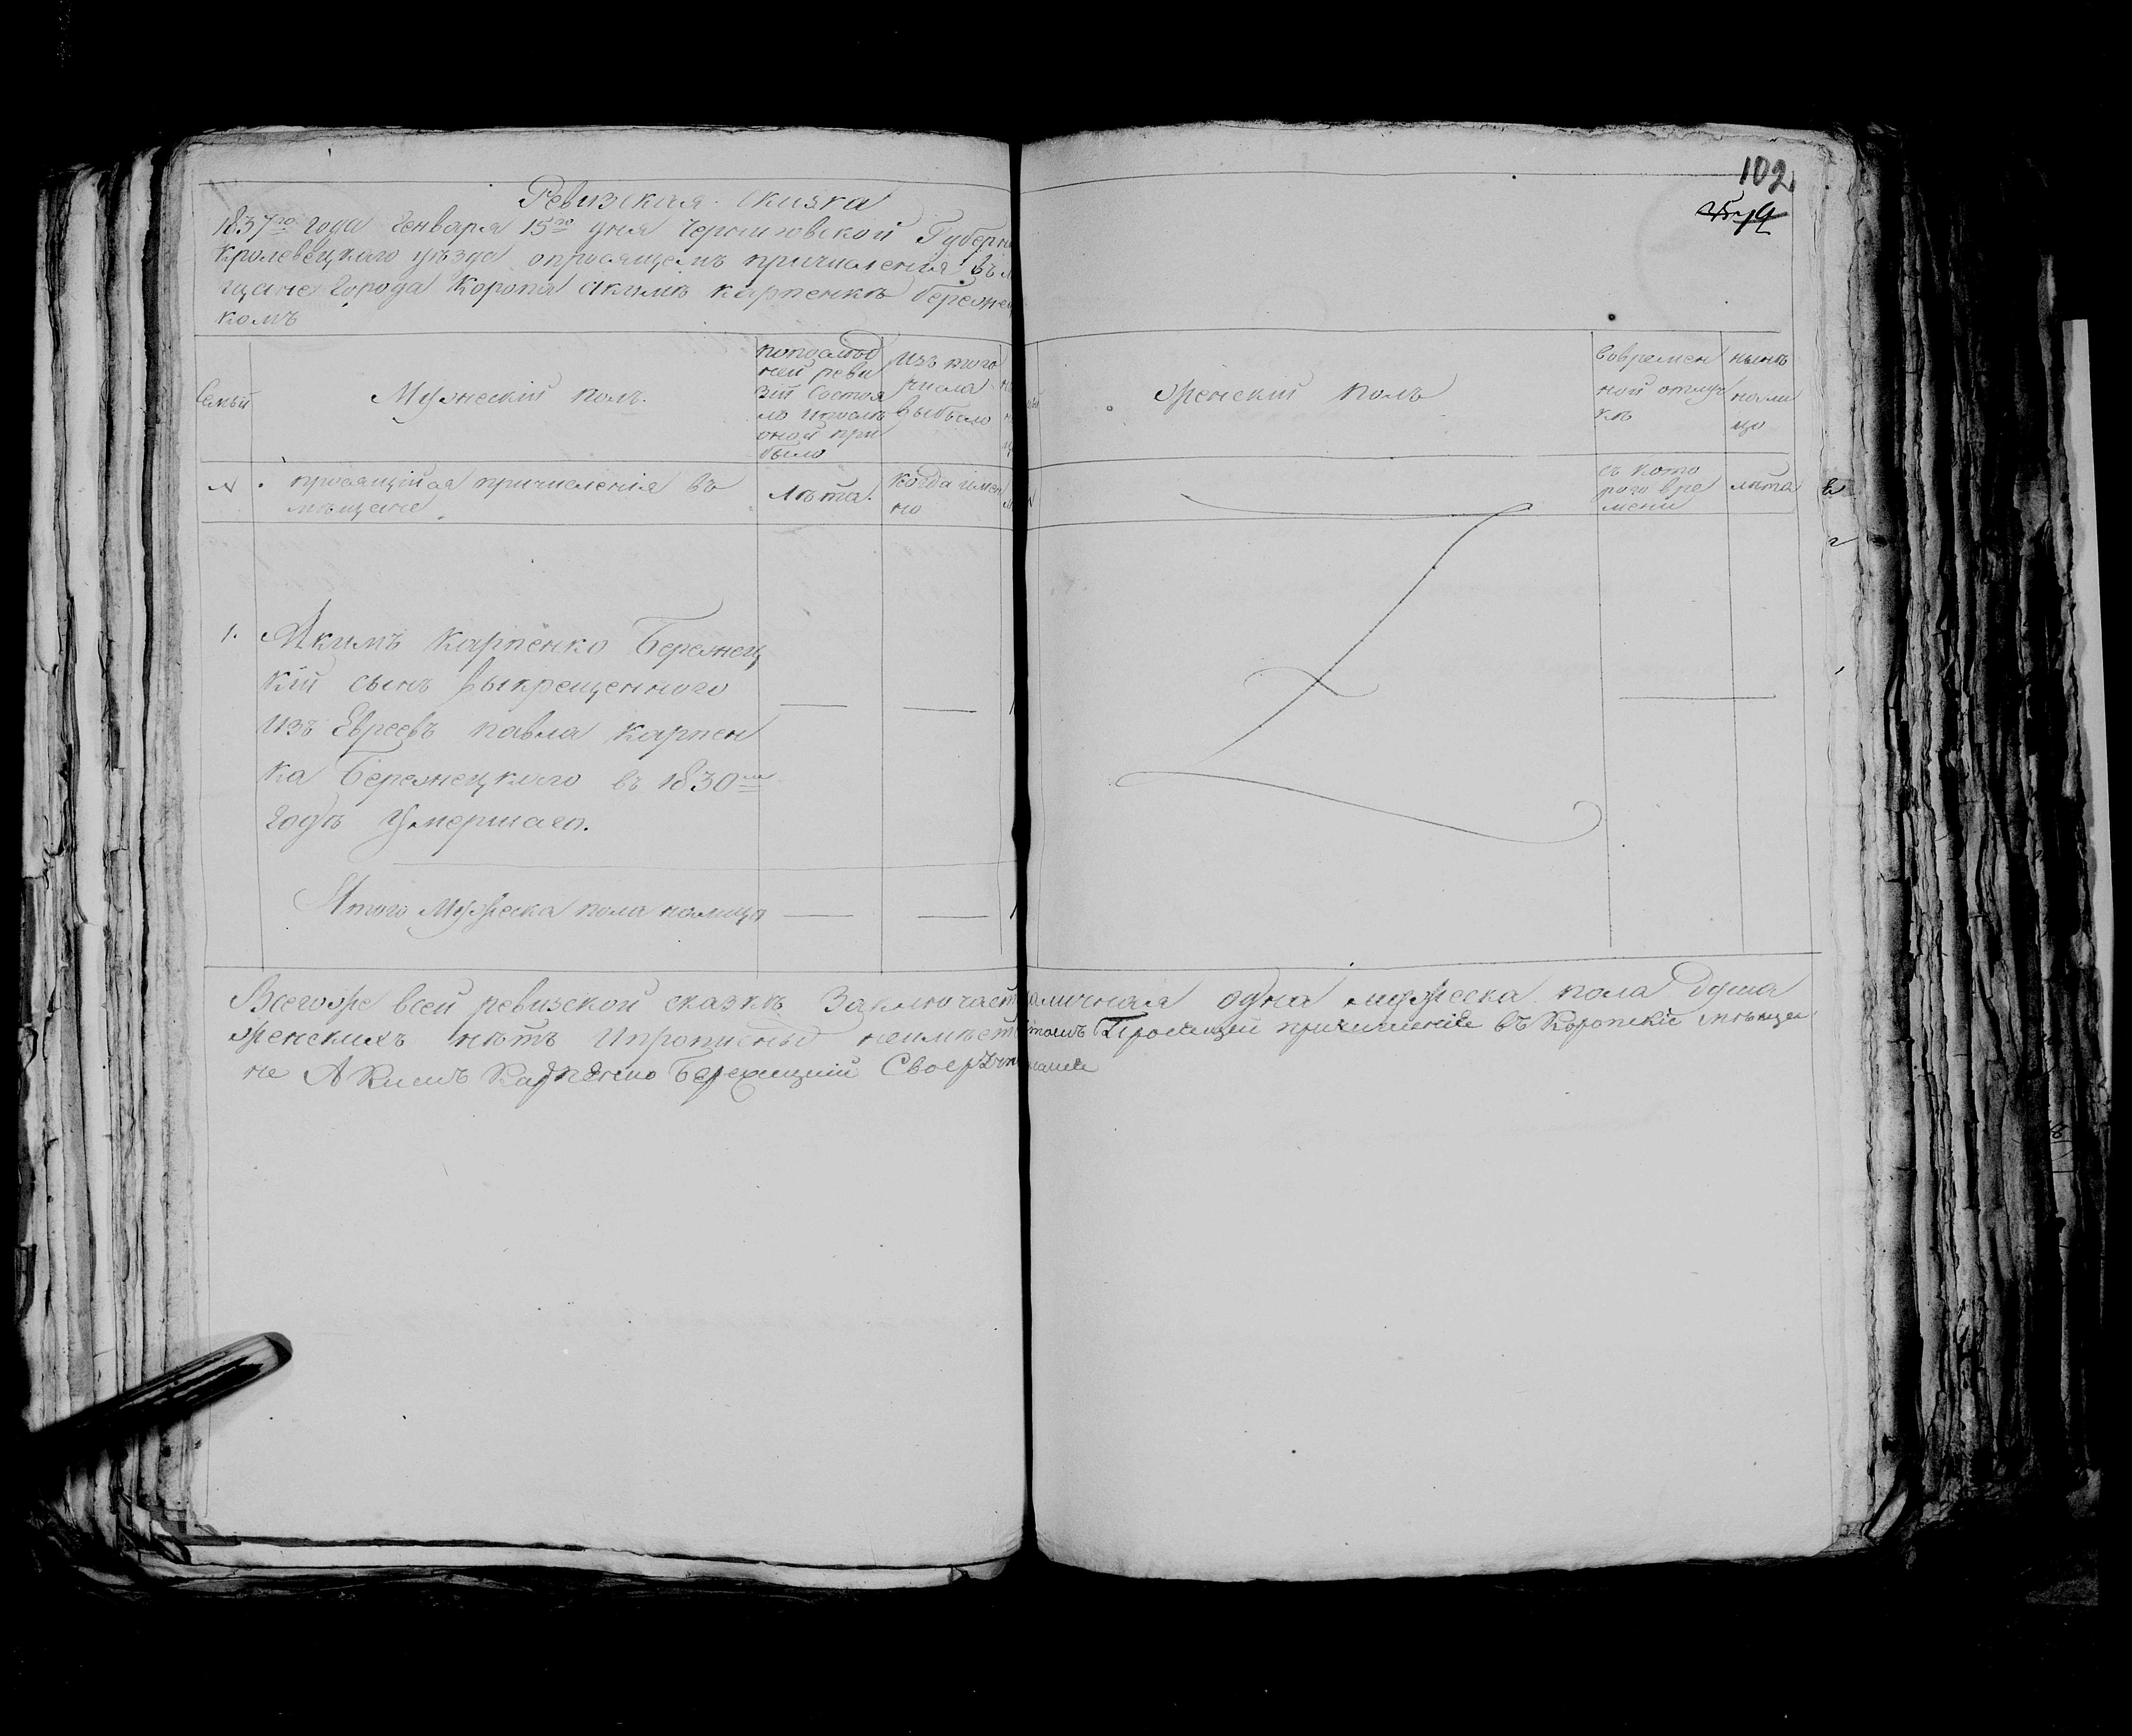 102
Ревизская Сказка
1837го года Генваря 15го дня Черниговской Губерн
Кролевецкаго уѣзда опросящемъ причисления въ м
щане города Коропа Акимѣ Карпенкѣ Бережец
комъ
Семьи
Мужескій полъ.
попослѣд
ней реви
зій Состоя
ло ипослѣ
оной при
было
Изъ того
числа
выбыло
Женскій полъ
Вовремен
ной отлуч
кѣ
нынѣ
нали
цо
№
просящійся причисления въ
мѣщане
Лѣта.
Когда имен
но
съ кото
раго вре
мени
лѣта
1. Акимъ Карпенко Бережец
кій сынъ Выкрещенного
изъ Евреевъ Павла Карпен
ка Бережецкаго въ 1830м
годѣ Умершаго.
Итого Мужеска пола налицо
Всегоже всей ревизской сказкѣ Заключает аличная одна мужеска пола душа
женскихъ нѣтъ Ипрописных неимѣет томъ Просящій причисленіе въ Коропскіе мѣща
не Акимъ Карпенко Бережецкій Своеручно